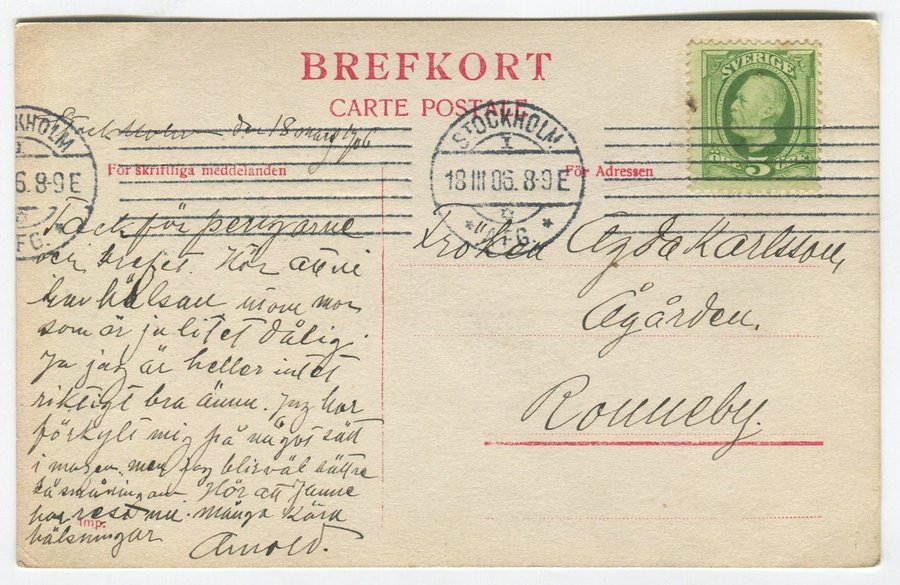 BREFKORT
CARTE POSTALE
SVERIGE
5
STOCKHOLM
1
18 III 06. 8-9 E
KHOLM
6. 8-9 E
Stockholm den 18 mars 1906
För skriftliga meddelanden
För Adressen
Tack för pengarne
och brefvet. Hör att ni
har hälsan utom mor
som är ju litet dålig.
Ja jag är heller intet
riktigt bra ännu. Jag har
förkylt mig på något sätt
i magen, men jag blir väl bättre
så småningom. Hör att Janne
har rest nu. Många kära
hälsningar
Arnold.
Imp.
Fröken Agda Karlsson,
Ågården.
Ronneby.